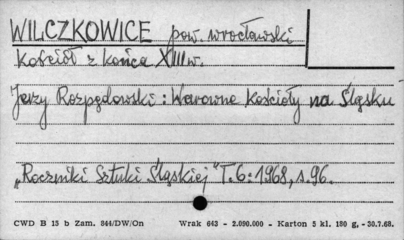 WILCZKOWICE pow. wrocławski
Kościół z końca XIII w.
Jerzy Rozpędowski: Warowne Kościoły na Śląsku
„Roczniki Sztuki Śląskiej" T.6: 1968, s. 96.
CWD B 13 b Zam. 844/DW/On Wrak 643 - 2.090.000 - Karton 5 kl. 180 g, - 30.7.68.